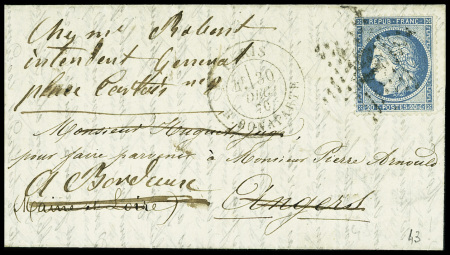 Chez Mr Robert
intendent General
place Tartets n° 8
Monsieur Huguet
pour faire parvenir à Monsieur Pierre Arnould
A Bordeaux
(Maine et Loire) Angers
REPUB. FRANC.
20 POSTES 20 C
20
DEC.
70
R. BONAPARTE
43